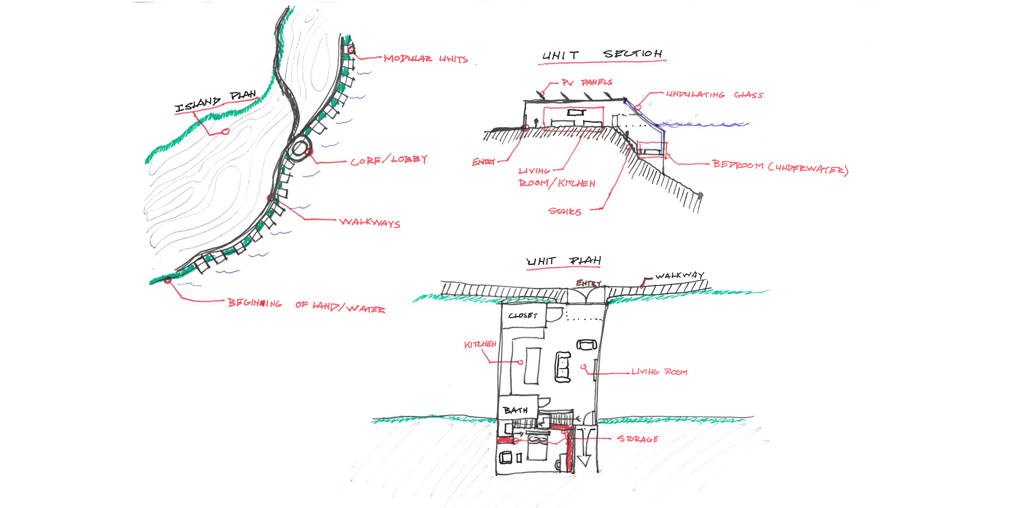 MODULAR UNITS
ISLAND PLAN
CORE/LOBBY
WALKWAYS
BEGINNING OF LAND/WATER
UNIT SECTION
PV PANELS
UNDULATING GLASS
ENTRY
LIVING
ROOM/KITCHEN
BEDROOM (UNDERWATER)
STAIRS
UNIT PLAN
WALKWAY
ENTRY
CLOSET
KITCHEN
LIVING ROOM
BATH
STORAGE